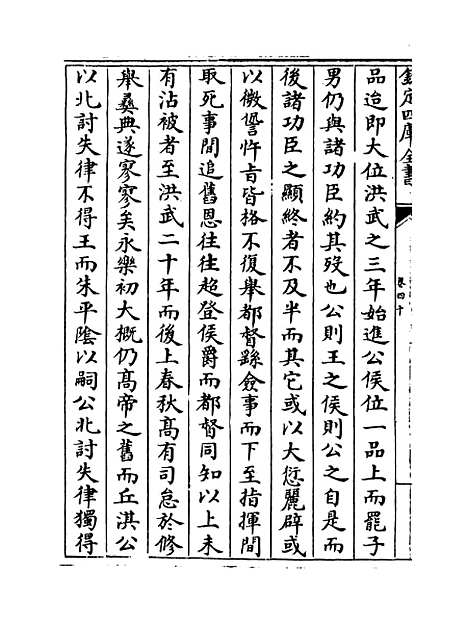 欽定四庫全書
卷四十
品迨即大位洪武之三年始進公侯位一品上而罷子
男仍與諸功臣約其歿也公則王之侯則公之自是而
後諸功臣之顯終者不及半而其它或以大愆麗辟或
以微詧忤㫖皆格不復舉都督蹑僉事而下至指揮間
取死事間追舊恩往往超登侯爵而都督同知以上未
有沾被者至洪武二十年而後上春秋髙有司怠於修
舉彞典遂寥寥矣永樂初大概仍髙帝之舊而丘淇公
以北討失律不得王而朱平隂以嗣公北討失律獨得